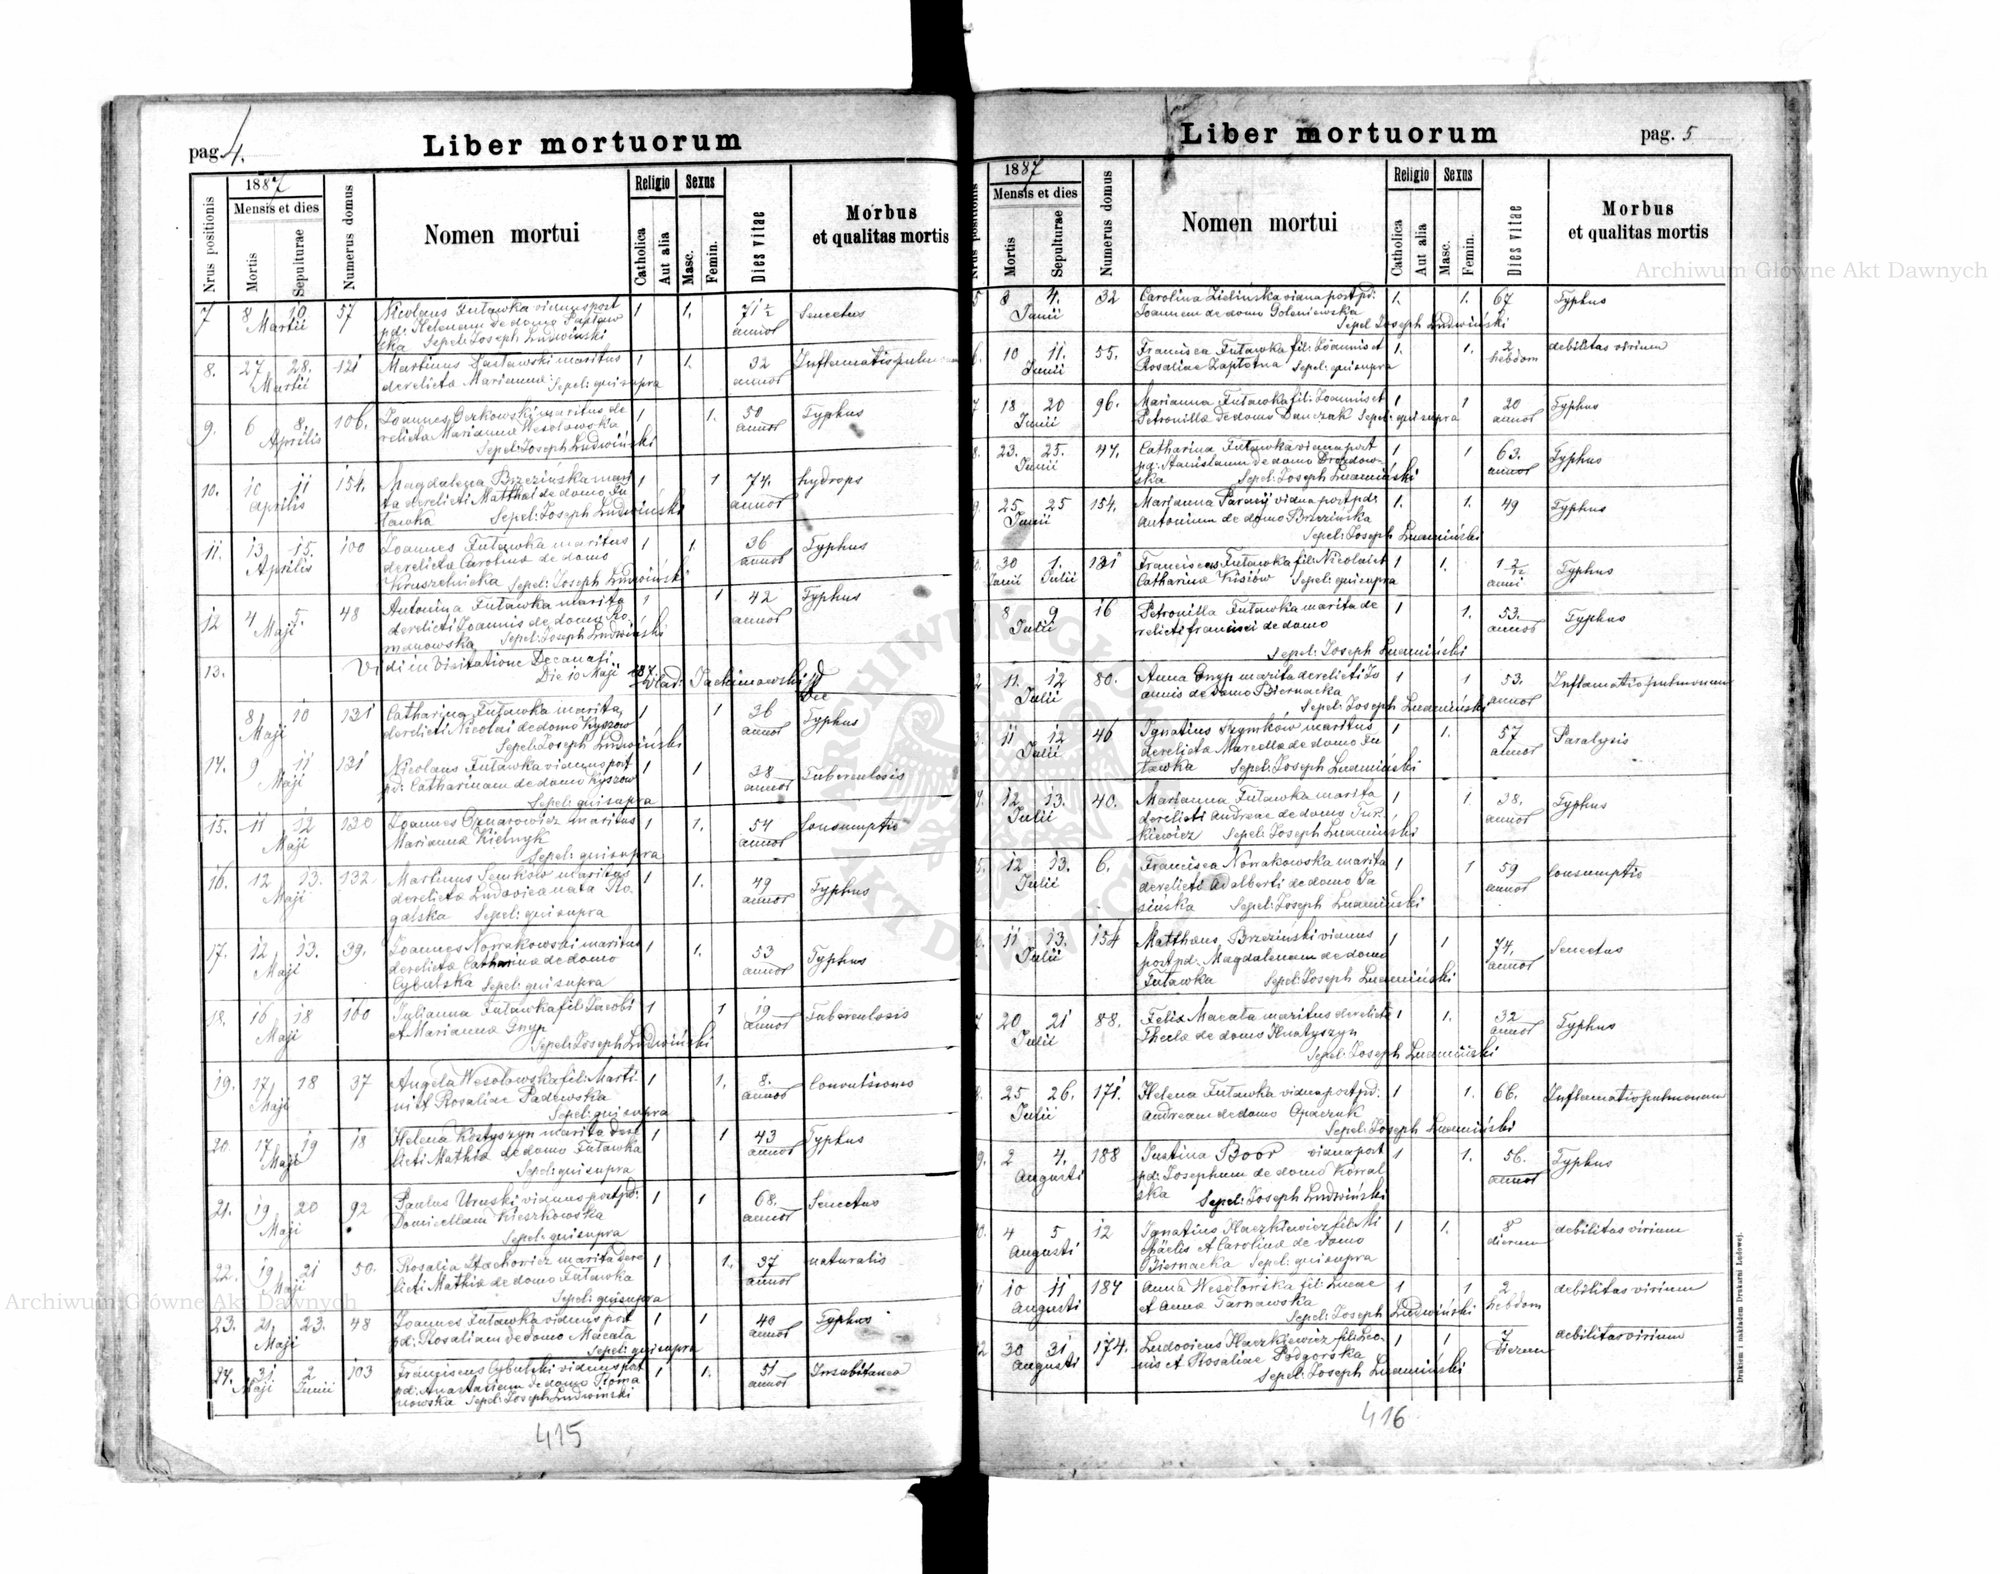 pag. 4.
Liber mortuorum
Nrus positionis
1887
Mensis et dies
Mortis
Sepulturae
Numerus domus
Nomen mortui
Religio
Catholica
Aut alia
Sexus
Masc.
Femin.
Dies vitae
Morbus
et qualitas mortis
7 8 10. 57 Nicolaus Futawka viduus post 1 1. 71 Senectus
Martii pd: Helenam de domo annor
Sepel: Joseph Ludwiński
8. 27 28. 121 Martinus maritus 1 1. 32 Inflamatio pulm
Martii derelictæ Marianna: Sepel: qui supra annor
9. 6 8. 106. Joannes maritus de 1 1. 50 Typhus
Aprilis relicta Marianna Wesołowska annor
Sepel: Joseph Ludwiński
10. 10 11 154. Magdalena Brzezińska mari 1 1 74. hydrops
Aprilis ta derelicti Matthai de domo Fu annor
tawka Sepel: Joseph Ludwiński
11. 13 15. 100 Joannes Futawka maritus 1 1. 36 Typhus
Aprilis derelictæ Carolina de domo annor
Kruszelnicka Sepel: Joseph Ludwiński
12 4 5. 48 Antonina Futawka marita 1 1 42 Typhus
Maji derelicti Joannis de domo Ro annor
manowska Sepel: Joseph Ludwiński
13. Vidi in Visitatione Decanali
Die 10 Maji 887
8 10 131 Catharina Futawka marita 1 1 36 Typhus
Maji derelicti Nicolai de domo Kyszow annor
Sepel: Joseph Ludwiński
14. 9 11 131 Nicolaus Futawka viduus post 1 1 38 Tuberculosis
Maji pd: Catharinam de domo Kyszow annor
Sepel: qui supra
15. 11 12 130 Joannes maritus 1 1. 54 Consumptio
Maji Marianna Kielnyk annor
Sepel: qui supra
16. 12 13. 132 Martinus Senkow maritus 1 1. 49 Typhus
Maji derelictæ Ludovica nata Ro annor
galska Sepel: qui supra
17. 12 13. 39. Joannes Nowakowski maritus 1 1. 53 Typhus
Maji derelictæ Catharina de domo annor
Cybulska Sepel: qui supra
18. 16 18 160 Julianna Futawka fil: Jacobi 1 1 19 Tuberculosis
Maji et Marianna Gnyp annor
Sepel: Joseph Ludwiński
19. 17 18 37 Angela Wesołowska fil: Marti- 1 1. 8. Convulsiones
Maji ni et Rosaliae Padewska annor
Sepel: qui supra
20. 17 19 18 Helena Kostyszyn marita dere 1 1 43 Typhus
Maji licti Mathiæ de domo Futawka annor
Sepel: qui supra
21. 19 20 92 Paulus Uruski viduus post pd: 1 1 68. Senectus
Maji Domicellam Kieszkowska annor
Sepel: qui supra
22. 19 21 50. Rosalia Stachowicz marita dere 1 1. 37 naturalis
Maji licti Mathiæ de domo Futawka annor
Sepel: qui supra
23. 21 23. 48 Joannes Futawka viduus post 1 1 40 Typhus
Maji pd: Rosaliam de domo Macała annor
Sepel: qui supra
24. 31. 2 103 Franciscus Cybulski viduus post 1 1. 51
Maji Junii pd: Anastasiam de domo Roma annor
nowska Sepel: Joseph Ludwinski
415
Liber mortuorum
pag. 5
Nrus positionis
1887
Mensis et dies
Mortis
Sepulturae
Numerus domus
Nomen mortui
Religio
Catholica
Aut alia
Sexus
Masc.
Femin.
Dies vitae
Morbus
et qualitas mortis
5 3 4. 32 Carolina Zielińska vidua post pd: 1. 1. 67 Typhus
Junii Joannem de domo Goleniewska
Sepel Joseph Ludwiński
6. 10 11. 55. Francisca Futawka fil: Joannis et 1. 1. 2 debilitas virium
Junii Rosaliae Sepel: qui supra hebdom
7 18 20 96. Marianna Futawka fil: Joannis et 1 1 20 Typhus
Junii Petronilla de domo Danczak Sepel: qui supra annor
8. 23. 25. 47. Catharina Futawka vidua post 1 1 63. Typhus
Junii pd: Stanislaum de domo Drozdow- annor
ska Sepel: Joseph Ludwiński
9 25 25 154. Marianna vidua post pd: 1. 1. 49 Typhus
Junii Antonium de domo Brzezińska
Sepel: Joseph Ludwiński
30 1. 131 Franciscus Futawka fil: Nicolai et 1 1. 1 2/12 Typhus
Junii Julii Catharina Kisiów Sepel: qui supra anni
8 9 16 Petronilla Futawka marita de 1 1. 53. Typhus
Julii relicti francisci de domo annor
Sepel: Joseph Ludwiński
2 11. 12 80. Anna Gnyp marita derelicti Jo 1 1 53. Inflamatio pulmonum
Julii annis de domo Biernacka annor
Sepel: Joseph Ludwiński
3. 11 12 46 Ignatius Szymków maritus 1 1. 57 Paralysis
Julii derelicta Marcella de domo Fu annor
tawka Sepel: Joseph Ludwiński
4. 12 13. 40. Marianna Futawka marita 1 1. 38. Typhus
Julii derelicti Andreae de domo Tur- annor
kiewicz Sepel: Joseph Ludwiński
5. 12 13. 6. Francisca Nowakowska marita 1 1 59 Consumptio
Julii derelicti Adalberti de domo Ja annor
sińska Sepel: Joseph Ludwiński
6. 11 13. 154 Matthaus Brzeziński viduus 1 1 74. Senectus
Julii post pd: Magdalenam de domo annor
Futawka Sepel: Joseph Ludwiński
7 20 21 88. Felix Macała maritus derelictæ 1 1. 32 Typhus
Julii Theclæ de domo Hnatyszyn annor
Sepel: Joseph Ludwiński
8. 25 26. 171. Helena Futawka vidua post pd: 1 1. 66. Inflamatio pulmonum
Julii Andream de domo Opaczuk
Sepel: Joseph Ludwiński
9. 2 4. 188 Justina Boor vidua post 1 1. 56. Typhus
Augusti pd: Josephum de domo Kowal annor
ska Sepel: Joseph Ludwiński
4 5 12 Ignatius Haczkiewicz fil: Mi 1 1. 8 debilitas virium
Augusti chaelis et Carolina de domo dierum
Biernacka Sepel: qui supra
10 11 187 Anna Wesołowska fil: Lucae 1 1 2 debilitas virium
Augusti et Anna Tarnawska hebdom
Sepel: Joseph Ludwiński
30 31 174. Ludovicus Haczkiewicz fil: Leo- 1 1 7 debilitas virium
Augusti nis et Rosaliae Podgorska dierum
Sepel: Joseph Ludwiński
Drukiem i nakładem Drukarni Ludowej.
416
Archiwum Główne Akt Dawnych
Archiwum Główne Akt Dawnych
ARCHIWUM GŁÓWNE AKT DAWNYCH